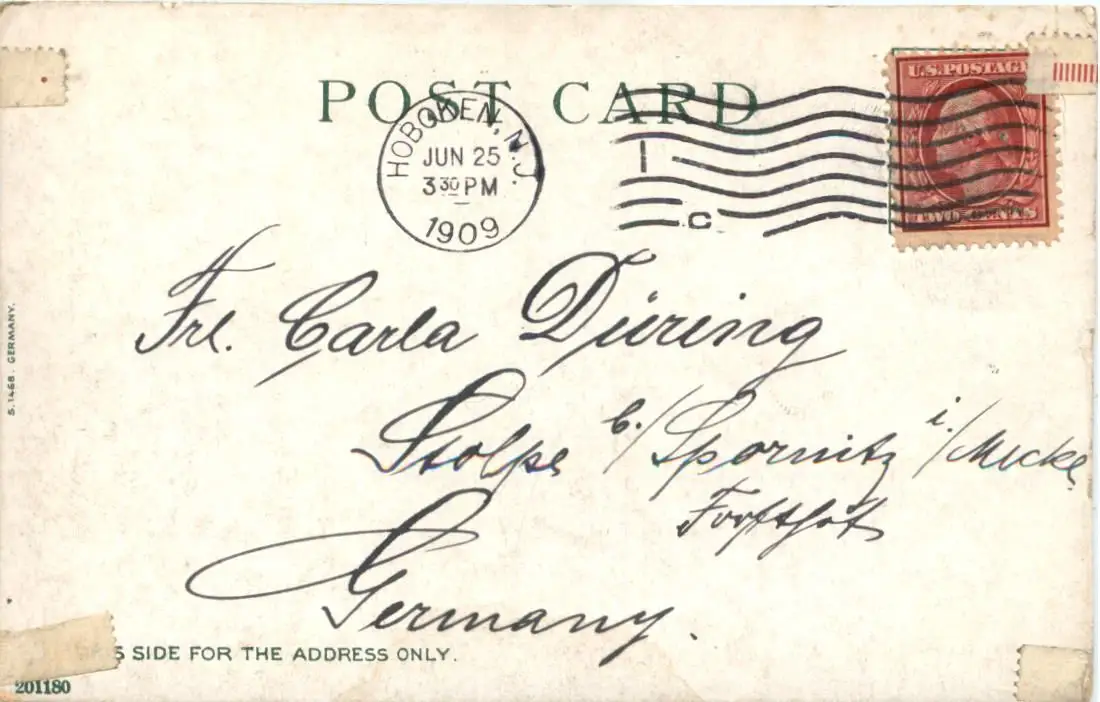 POST CARD
HOBOKEN, N.J.
JUN 25
3 30 PM
1909
1
C
U.S. POSTAGE
TWO CENTS
Frl. Carla Düring
Stolpe b./Spornitz i./Meckl
Forsthof
Germany.
S SIDE FOR THE ADDRESS ONLY.
201180
S. 1468. GERMANY.